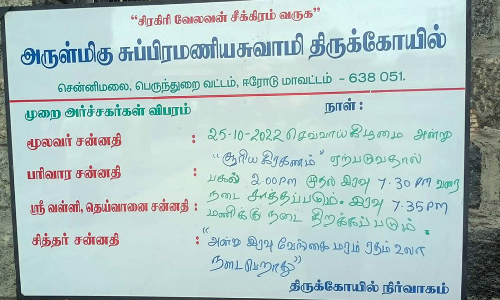 “சிரகிரி வேலவன் சீக்கிரம் வருக”
அருள்மிகு சுப்பிரமணியசுவாமி திருக்கோயில்
சென்னிமலை, பெருந்துறை வட்டம், ஈரோடு மாவட்டம் - 638 051.
முறை அர்ச்சகர்கள் விபரம் நாள் :
மூலவர் சன்னதி : 25-10-2022 செவ்வாய்கிழமை அன்று
“சூரிய கிரகணம்” ஏற்படுவதால்
பரிவார சன்னதி : பகல் 2.00 PM முதல் இரவு 7.30 PM வரை
நடை சாத்தப்படும். இரவு 7.35 PM
ஸ்ரீ வள்ளி, தெய்வானை சன்னதி : மணிக்கு நடை திறக்கப்படும்.
சித்தர் சன்னதி : “அன்று இரவு வேங்கை மரம் ரதம் உலா
நடைபெறாது”
திருக்கோயில் நிர்வாகம்